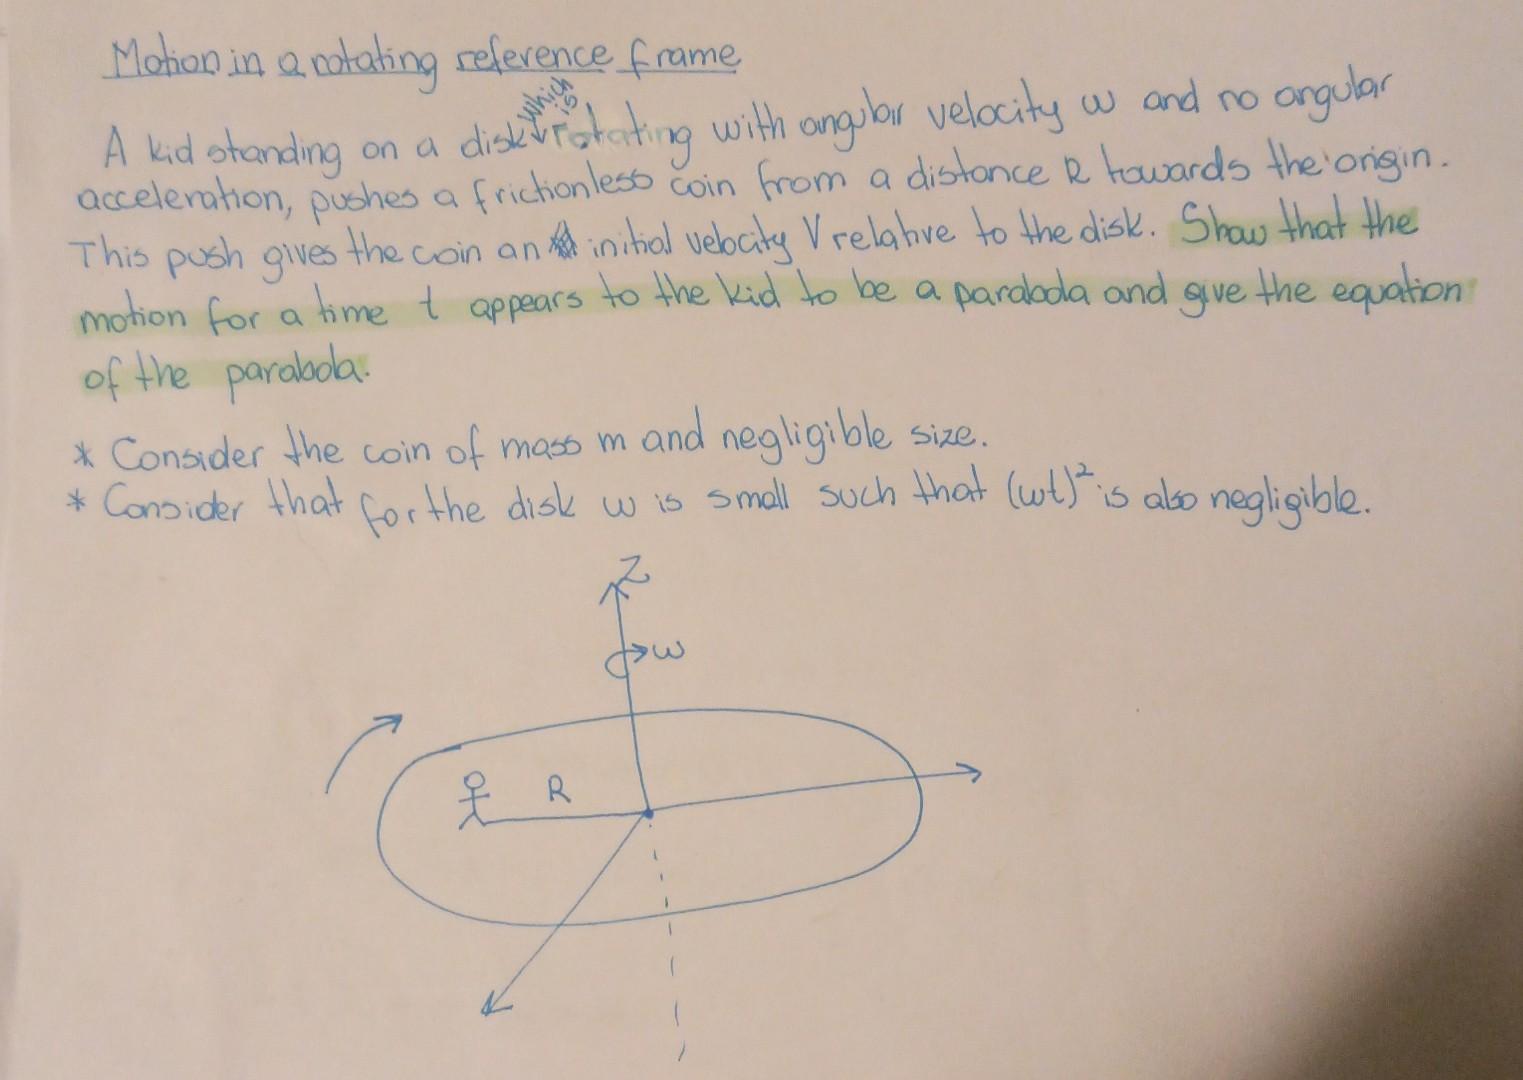 Motion in a rotating reference frame
A kid standing on a disk which is rotating with angular velocity ω and no angular
acceleration, pushes a frictionless coin from a distance R towards the origin.
This push gives the coin an initial velocity V relative to the disk. Show that the
motion for a time t appears to the kid to be a parabola and give the equation
of the parabola.
* Consider the coin of mass m and negligible size.
* Consider that for the disk ω is small such that (ωt)² is also negligible.
Z
ω
R